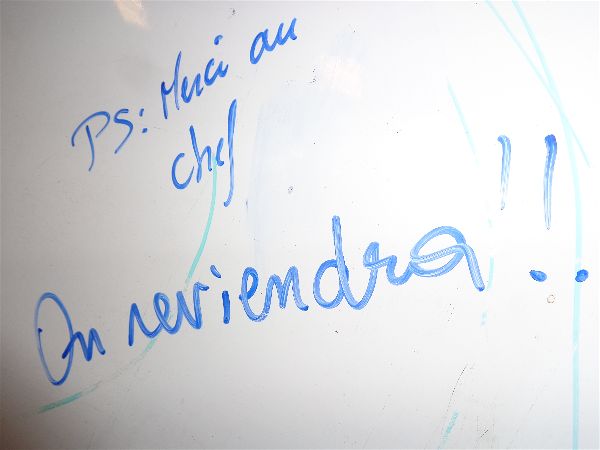 PS: Merci au
chef
On reviendra!!